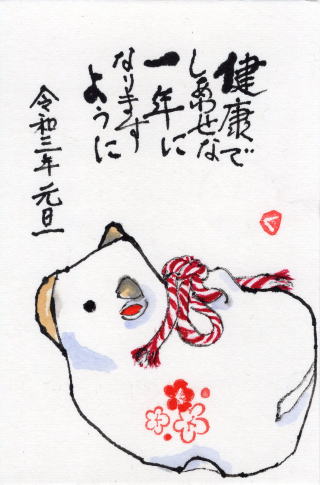 健康で
しあわせな
一年に
なります
ように
令和三年 元旦